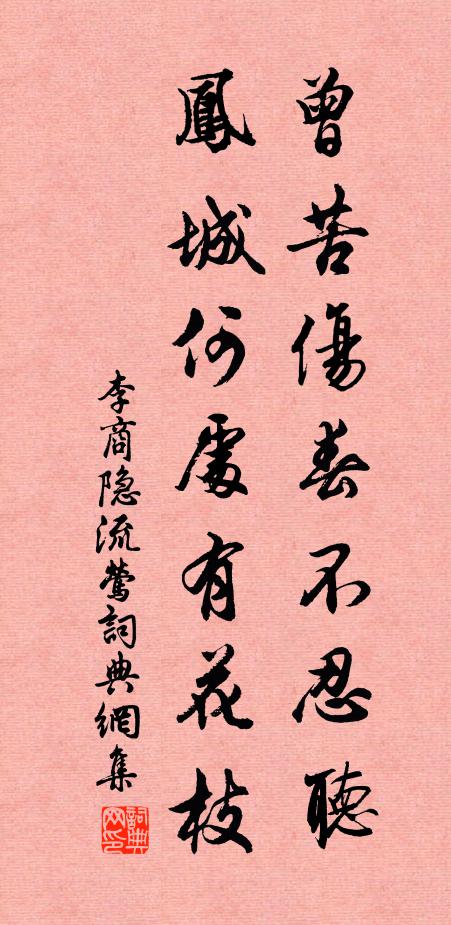 曾苦傷春不忍聽
鳳城何處有花枝
李商隐流莺詞典網集
詞典网印